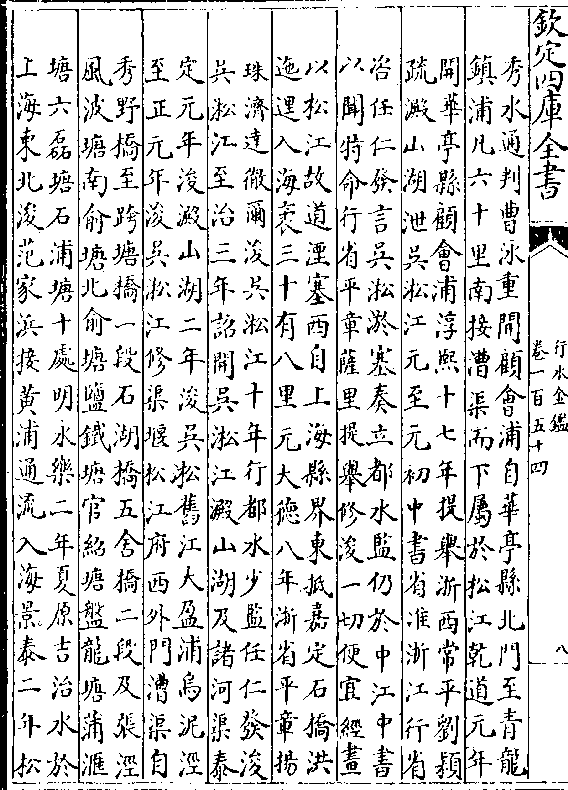 欽定四庫全書
行水金鑑
卷一百五十四
八
秀水通判曹泳重開顧會浦自華亭縣北門至青龍
鎮浦凡六十里南接漕渠而下屬於松江乾道元年
開華亭縣顧會浦淳熙十七年提舉浙西常平劉頴
疏澱山湖泄吳松江元至元初中書省准浙江行省
咨任仁發言吳淞淤塞奏立都水監仍於中江中書
以聞特命行省平章薩里提舉修浚一切便宜經畫
以松江故道湮塞西自上海縣界東抵嘉定石橋洪
迤邐入海袤三十有八里元大德八年浙省平章揚
珠濟達徹爾浚吳淞江十年行都水少監任仁發浚
吳淞江至治三年詔開吳淞江澱山湖及諸河渠泰
定元年浚澱山湖二年浚吳松舊江大盈浦烏泥涇
至正元年浚吳淞江修渠堰松江府西外門漕渠自
秀野橋至跨塘橋一段石湖橋五舍橋二段及張涇
風波塘南俞塘北俞塘鹽鐵塘官紹塘盤龍塘蒲滙
塘六磊塘石浦塘十處明永樂二年夏原吉治水於
上海東北浚范家浜接黃浦通流入海景泰二年松